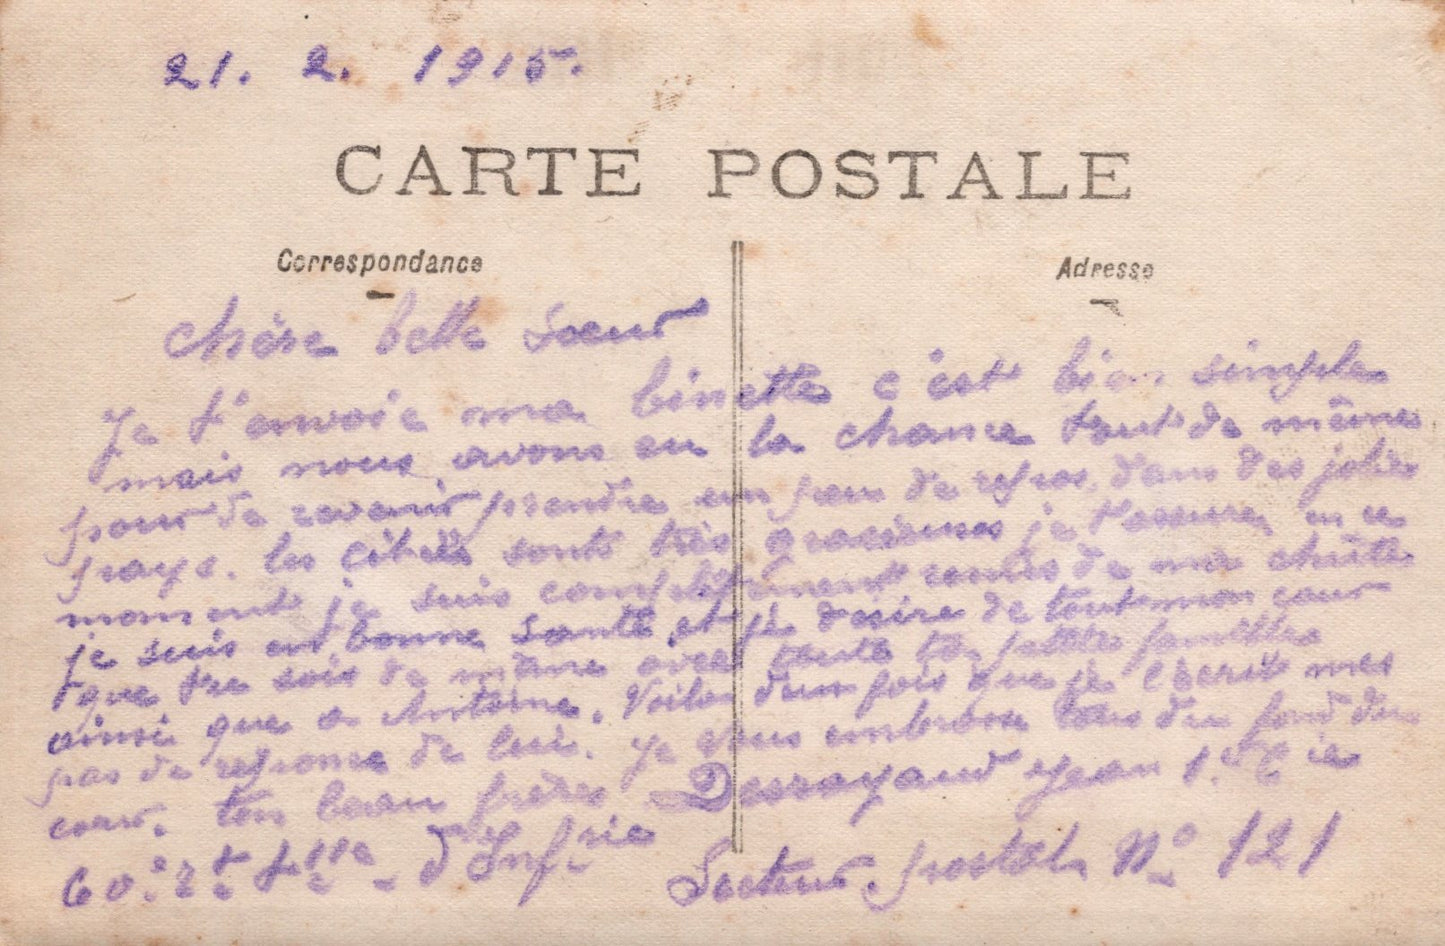 21. 2. 1915.
CARTE POSTALE
Correspondance
Adresse
chère belle Sœur
Je t'envoie ma binette c'est bien simple
mais nous avons eu la chance tout de même
pour de revenir prendre un peu de repos, dans des jolies
pays. les sont très gracieuses je t'assure, en ce
moment je suis complètement remis de ma chûtte
je suis en bonne santé, et je désire de tout mon cœur
que tu sois de même avec toute ta petite
ainsi que a Antoine. Voila deux fois que je écrit mes
pas de reponse de lui. Je vous embrasse tous du fond du
cœur. ton beau frère Desrayaud Jean 1.e Cie
60.e d'Infrie Secteur postal No 121